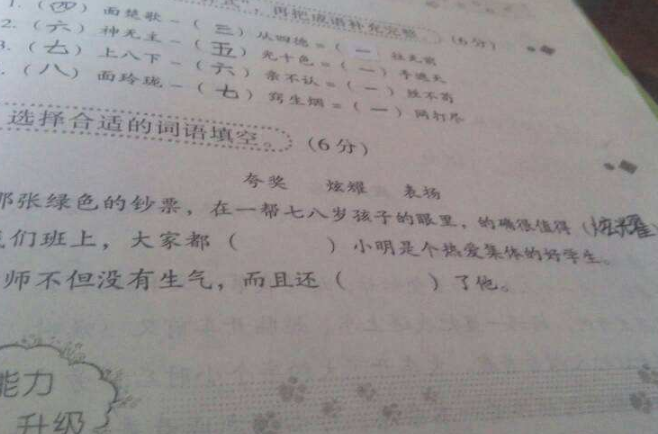 再把成语补充完整。(6分)
1.(四)面楚歌-(三)从四德=(一)往无前
2.(六)神无主-(五)光十色=(一)手遮天
3.(七)上八下-(六)亲不认=(一)丝不苟
.(八)面玲珑-(七)窍生烟=(一)网打尽
选择合适的词语填空。(6分)
夸奖 炫耀 表扬
那张绿色的钞票，在一帮七八岁孩子的眼里，的确很值得(炫耀)
我们班上，大家都( )小明是个热爱集体的好学生。
师不但没有生气，而且还( )了他。
能力
升级